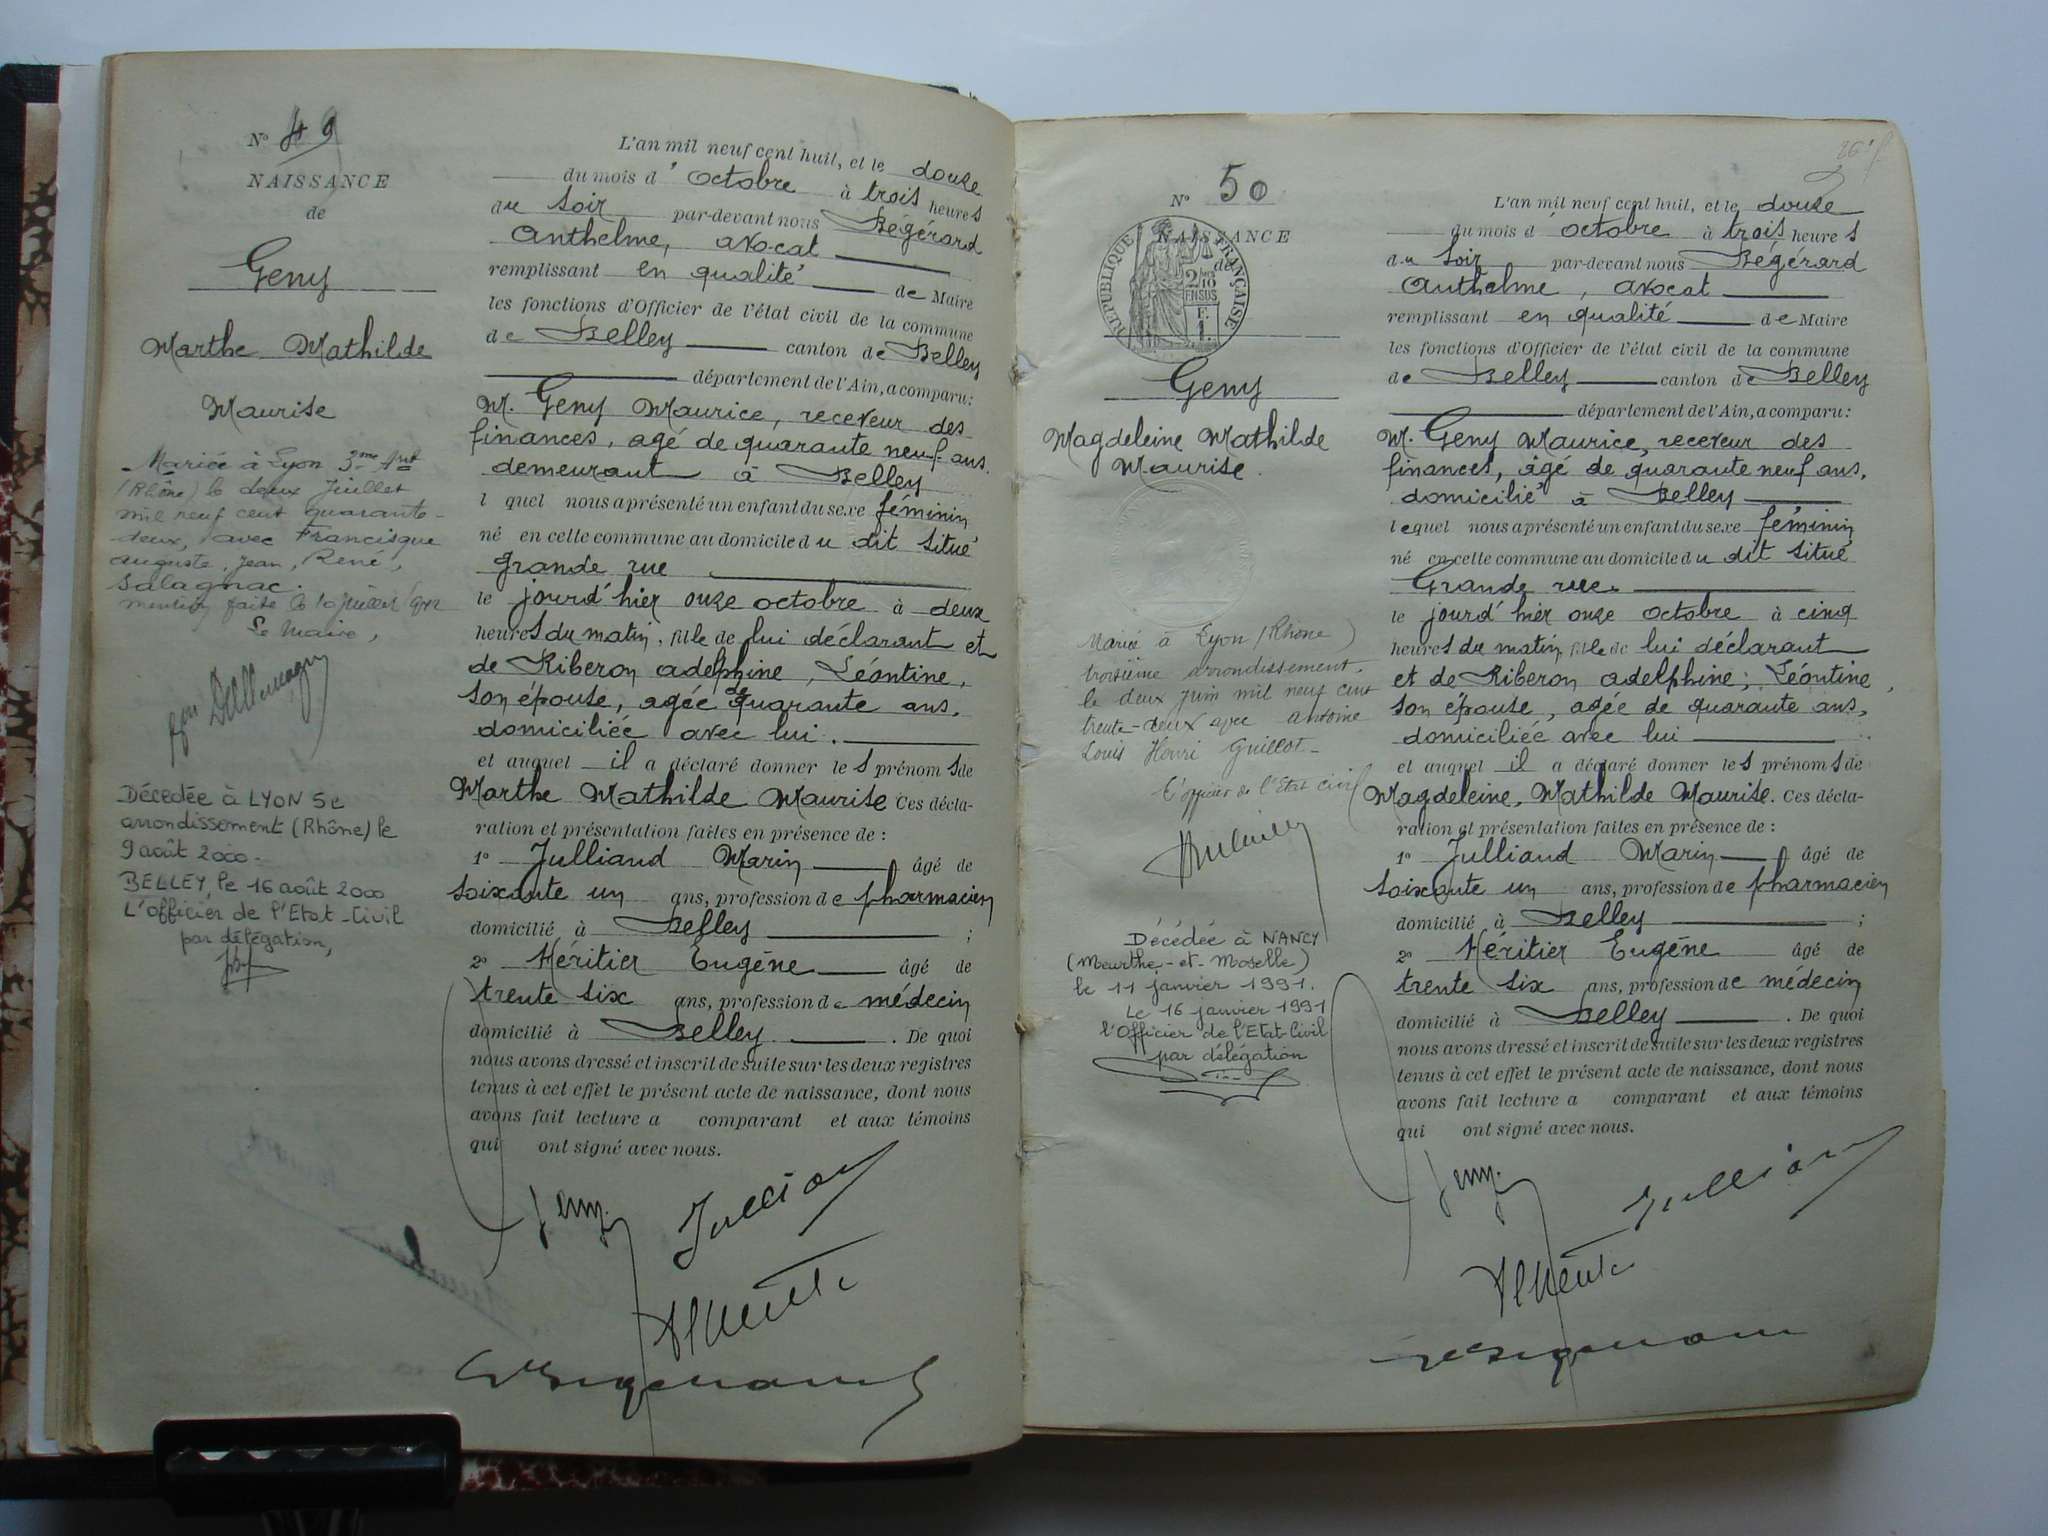 N° 49
NAISSANCE
de
Geny
Marthe Mathilde
Maurise
Mariée à Lyon 3me Art
(Rhône) le deux Juillet
mil neuf cent quarante-
deux, avec Francisque
auguste, Jean, René,
Salagnac.
mention faite le 10 juillet 1942
Le Maire,
Décédée à LYON 5e
arrondissement (Rhône) le
9 août 2000.
BELLEY, le 16 août 2000
L'officier de l'Etat-Civil
par délégation,
L'an mil neuf cent huit, et le douze
du mois d'octobre à trois heures
du soir par-devant nous Bégérard
Anthelme, avocat
remplissant en qualité de Maire
les fonctions d'Officier de l'état civil de la commune
de Belley canton de Belley
département de l'Ain, a comparu:
M. Geny Maurice, receveur des
finances, agé de quarante neuf ans.
demeurant à Belley
l quel nous a présenté un enfant du sexe féminin
né en cette commune au domicile du dit situé
grande rue
le jourd'hier onze octobre à deux
heures du matin, fille de lui déclarant et
de Riberon adelphine, Léontine,
son épouse, agée de quarante ans,
domiciliée avec lui.
et auquel il a déclaré donner les prénoms de
Marthe Mathilde Maurise Ces décla-
ration et présentation faites en présence de :
1° Julliand Marin âgé de
soixante un ans, profession de pharmacien
domicilié à Belley ;
2° Héritier Eugène âgé de
trente six ans, profession de médecin
domicilié à Belley . De quoi
nous avons dressé et inscrit de suite sur les deux registres
tenus à cet effet le présent acte de naissance, dont nous
avons fait lecture a comparant et aux témoins
qui ont signé avec nous.
Geny
Julliand
N° 50
NAISSANCE
de
RÉPUBLIQUE FRANÇAISE
2/10
EN SUS
F.
1.
Geny
Magdeleine Mathilde
Maurise.
Mariée à Lyon (Rhône)
troisième arrondissement.
le deux juin mil neuf cent
trente-deux avec Antoine
Louis Henri Guillot-
L'officier de l'Etat civil
Décédée à NANCY
(Meurthe-et-Moselle)
le 11 janvier 1991.
Le 16 janvier 1991
l'Officier de l'Etat-Civil
par délégation
L'an mil neuf cent huit, et le douze
du mois d'octobre à trois heures
du soir par-devant nous Bégérard
Anthelme, avocat
remplissant en qualité de Maire
les fonctions d'Officier de l'état civil de la commune
de Belley canton de Belley
département de l'Ain, a comparu:
M. Geny Maurice, receveur des
finances, âgé de quarante neuf ans,
domicilié à Belley
lequel nous a présenté un enfant du sexe féminin
né en cette commune au domicile du dit situé
Grande rue.
le jourd'hier onze octobre à cinq
heures du matin, fille de lui déclarant
et de Riberon adelphine; Léontine,
son épouse, agée de quarante ans,
domiciliée avec lui
et auquel il a déclaré donner les prénoms de
Magdeleine, Mathilde Maurise. Ces décla-
ration et présentation faites en présence de :
1° Julliand Marin âgé de
soixante un ans, profession de pharmacien
domicilié à Belley ;
2° Héritier Eugène âgé de
trente six ans, profession de médecin
domicilié à Belley . De quoi
nous avons dressé et inscrit de suite sur les deux registres
tenus à cet effet le présent acte de naissance, dont nous
avons fait lecture a comparant et aux témoins
qui ont signé avec nous.
Geny
Julliand